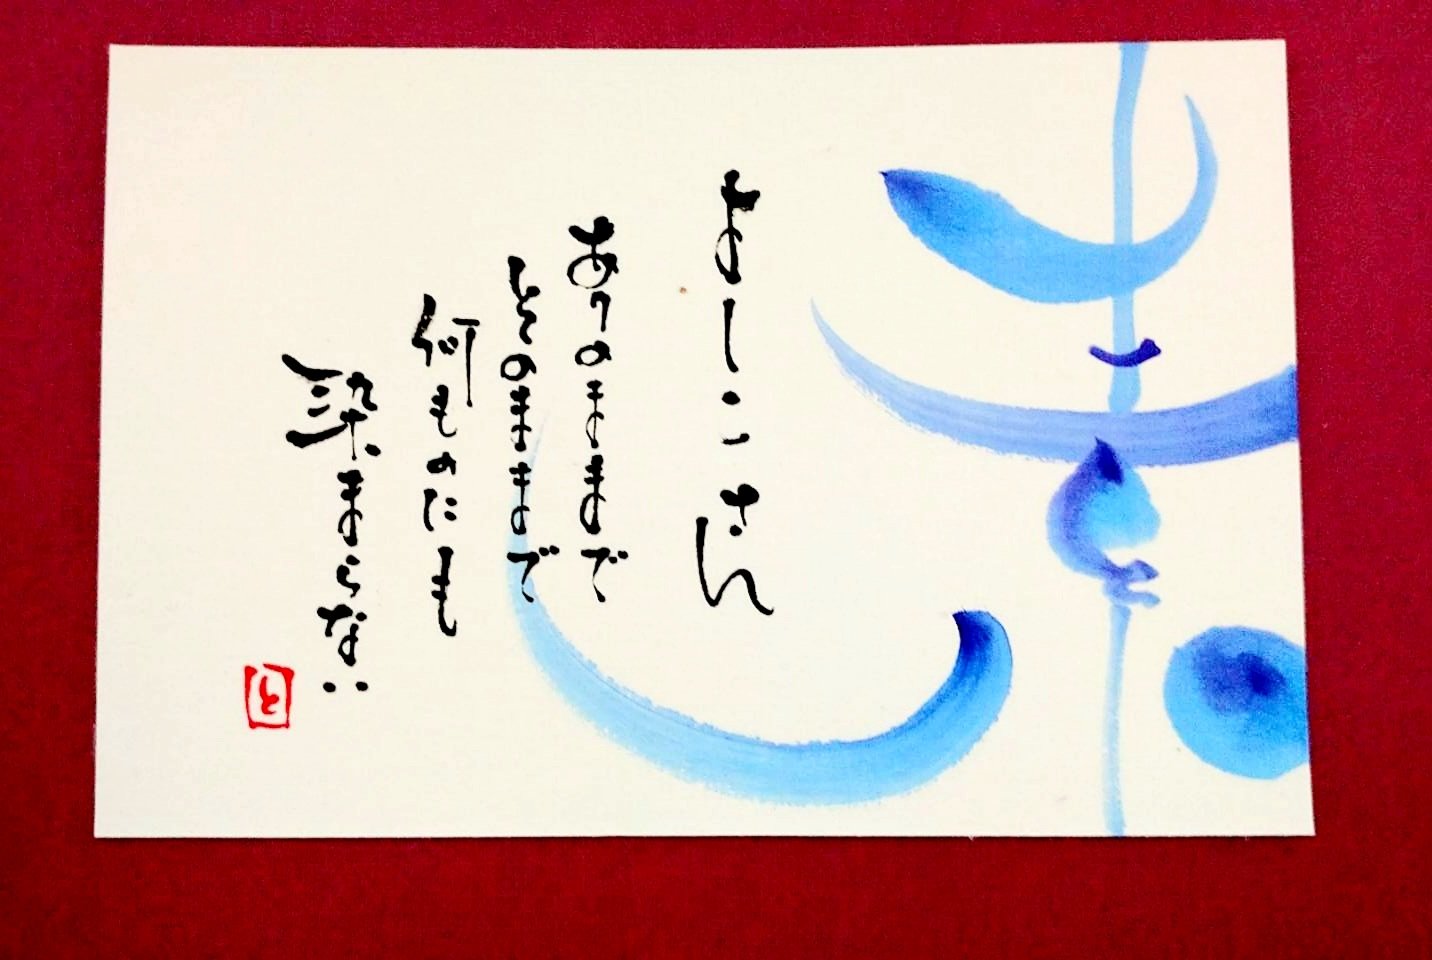 よしこさん
ありのままで
そのままで
何ものにも
染まらない
と